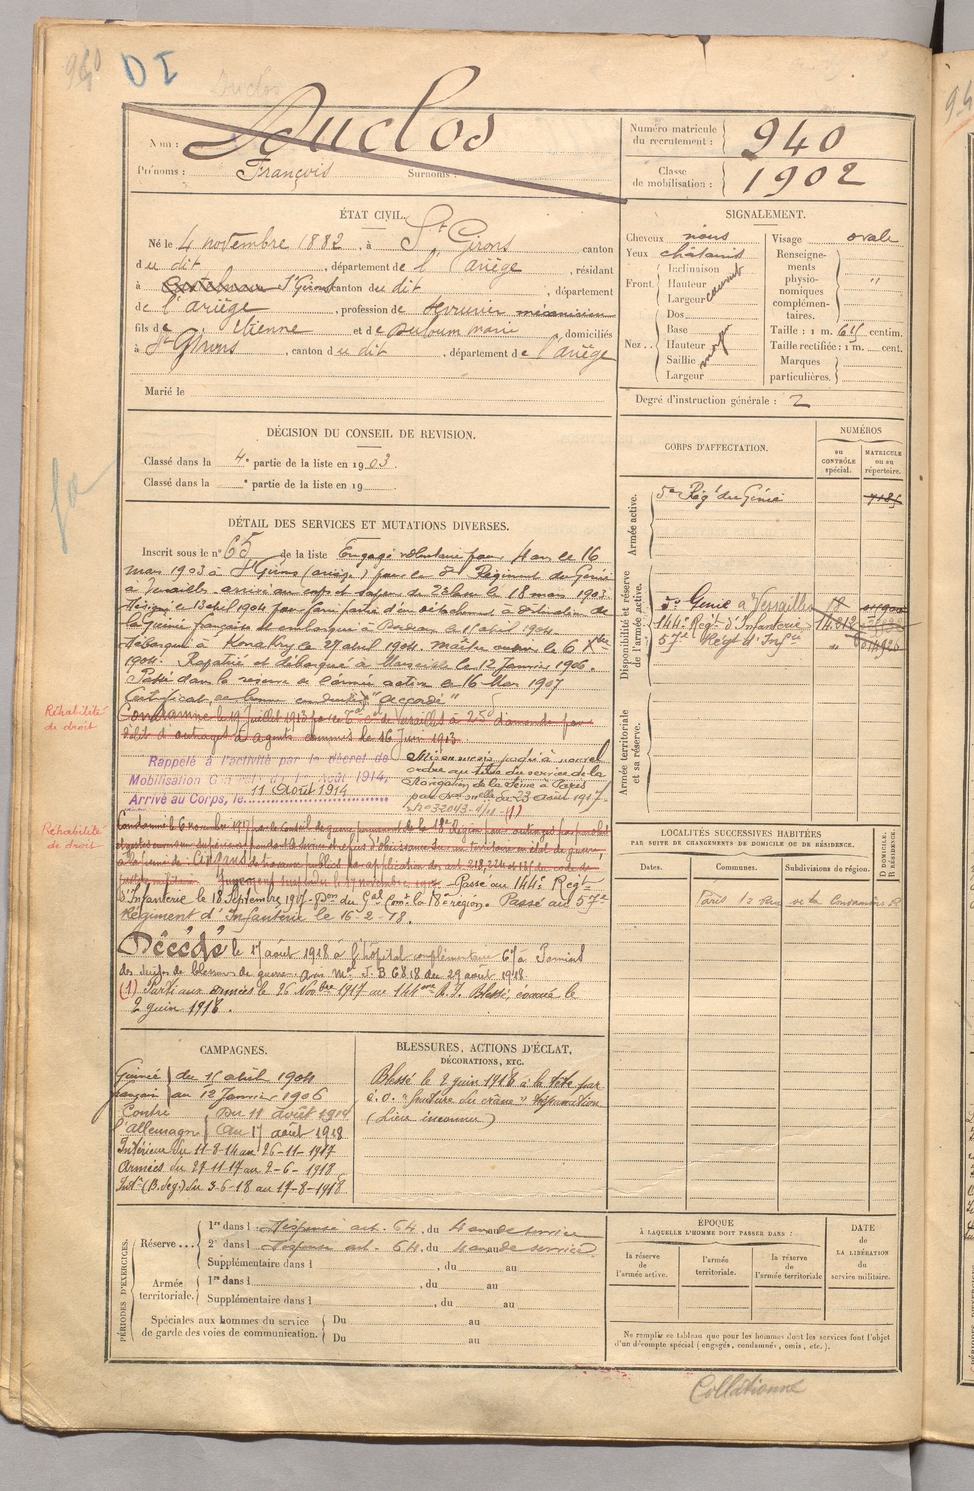 940
D I
Duclos
Nom : Duclos
Prénoms : François Surnoms :
Numéro matricule du recrutement : 940
Classe de mobilisation : 1902
ÉTAT CIVIL.
Né le 4 novembre 1882, à St Girons canton
du dit, département de l'Ariège, résidant
à St Girons canton du dit, département
de l'ariège, profession de serrurier mécanicien
fils de Etienne et de marie, domiciliés
à St Girons, canton du dit, département de l'ariège
Marié le
SIGNALEMENT.
Cheveux noirs
Yeux châtains
Front. Inclinaison
Hauteur
Largeur
Nez.. Dos
Base
Hauteur
Saillie
Largeur
moy
Visage ovale
Renseignements physionomiques complémentaires. "
Taille : 1 m. 65 centim.
Taille rectifiée : 1 m. cent.
Marques particulières.
Degré d'instruction générale : 2
DÉCISION DU CONSEIL DE REVISION.
Classé dans la 4e partie de la liste en 1903.
Classé dans la e partie de la liste en 19
CORPS D'AFFECTATION.
NUMÉROS
au CONTRÔLE spécial.
MATRICULE ou au répertoire.
Armée active.
5e Régt du Génie 7185
Disponibilité et réserve de l'armée active.
5e Génie à Versailles 18
144e Régt d'Infanterie 14812
57e Régt d'Infie "
Armée territoriale et sa réserve.
DÉTAIL DES SERVICES ET MUTATIONS DIVERSES.
Inscrit sous le n° 65 de la liste Engagé volontaire pour 4 ans le 16
mars 1903 à St Girons (ariège) pour le 5e Régiment du Génie
à Versailles arrivé au corps et sapeur de 2e classe le 18 mars 1903.
Désigné le 13 avril 1904 pour faire partie d'un détachement à destination de
la Guinée française et embarqué à Bordeaux le 15 avril 1904.
Débarqué à Konakry le 29 avril 1904. maître ouvrier le 6 Xbre
1904. Rapatrié et débarqué à Marseille le 12 Janvier 1906.
Passé dans la réserve de l'armée active le 16 Mars 1907
Certificat de bonne conduite "Accordé"
Réhabilité de droit
Condamné le 19 Juillet 1913 par le de Versailles à 25f d'amende pour
délit d'outrages à agents commis le 16 Juin 1913.
Rappelé à l'activité par le décret de
Mobilisation Générale du 1er Août 1914,
Arrivé au Corps, le 11 Août 1914
Mis en sursis jusqu'à nouvel
ordre au titre du service de la
Navigation de la Seine à Paris
du 23 Août 1917
N° 32043-4/11 (1)
Réhabilité de droit
Condamné le 6 novembre 1917 par le Conseil de guerre permanent de la 18e Région pour outrages par paroles
et refus d'obéissance sur un territoire en état de guerre,
à la peine de Cinq ans de travaux publics par application des art. 218, 224 et du code de
justice militaire. Jugement suspendu le novembre Passé au 144e Regt
d'Infanterie le 18 Septembre 1917. Don du Gal Comt la 18e région. Passé au 57e
Régiment d'Infanterie le 16-2-18.
Décédé le 17 août 1918 à l'hôpital complémentaire 67 à
des suites de blessures de guerre. Avis Mel J. B 6818 du 29 août 1918
(1) Parti aux armées le 26 Novbre 1917 au 144me R.I. Blessé, évacué le
2 juin 1918.
LOCALITÉS SUCCESSIVES HABITÉES
PAR SUITE DE CHANGEMENTS DE DOMICILE OU DE RÉSIDENCE.
Dates. Communes. Subdivisions de région. D DOMICILE. R RÉSIDENCE.
Paris 12 rue de la R
CAMPAGNES.
Guinée française du 15 avril 1904
au 12 Janvier 1906
Contre l'allemagne Du 11 août 1914
au 17 août 1918
Intérieur du 11-8-14 au 26-11-1917
Armées du 27-11-17 au 2-6-1918
Intr (B. deg.) du 3-6-18 au 17-8-1918
BLESSURES, ACTIONS D'ÉCLAT,
DÉCORATIONS, ETC.
Blessé le 2 juin 1918 à la tête par
é.o. "fracture du crâne" trépanation
(Lieu inconnu)
PÉRIODES D'EXERCICES.
Réserve... 1re dans l Dispensé art. 64, du 4 ans au de service
2e dans l Dispensé art. 64, du 4 ans au de service
Supplémentaire dans l , du au
Armée territoriale. 1re dans l , du au
Supplémentaire dans l , du au
Spéciales aux hommes du service de garde des voies de communication. Du au
Du au
ÉPOQUE
À LAQUELLE L'HOMME DOIT PASSER DANS :
la réserve de l'armée active.
l'armée territoriale.
la réserve de l'armée territoriale
DATE DE LA LIBÉRATION du service militaire.
Ne remplir ce tableau que pour les hommes dont les services font l'objet
d'un décompte spécial (engagés, condamnés, omis, etc.).
Collationné